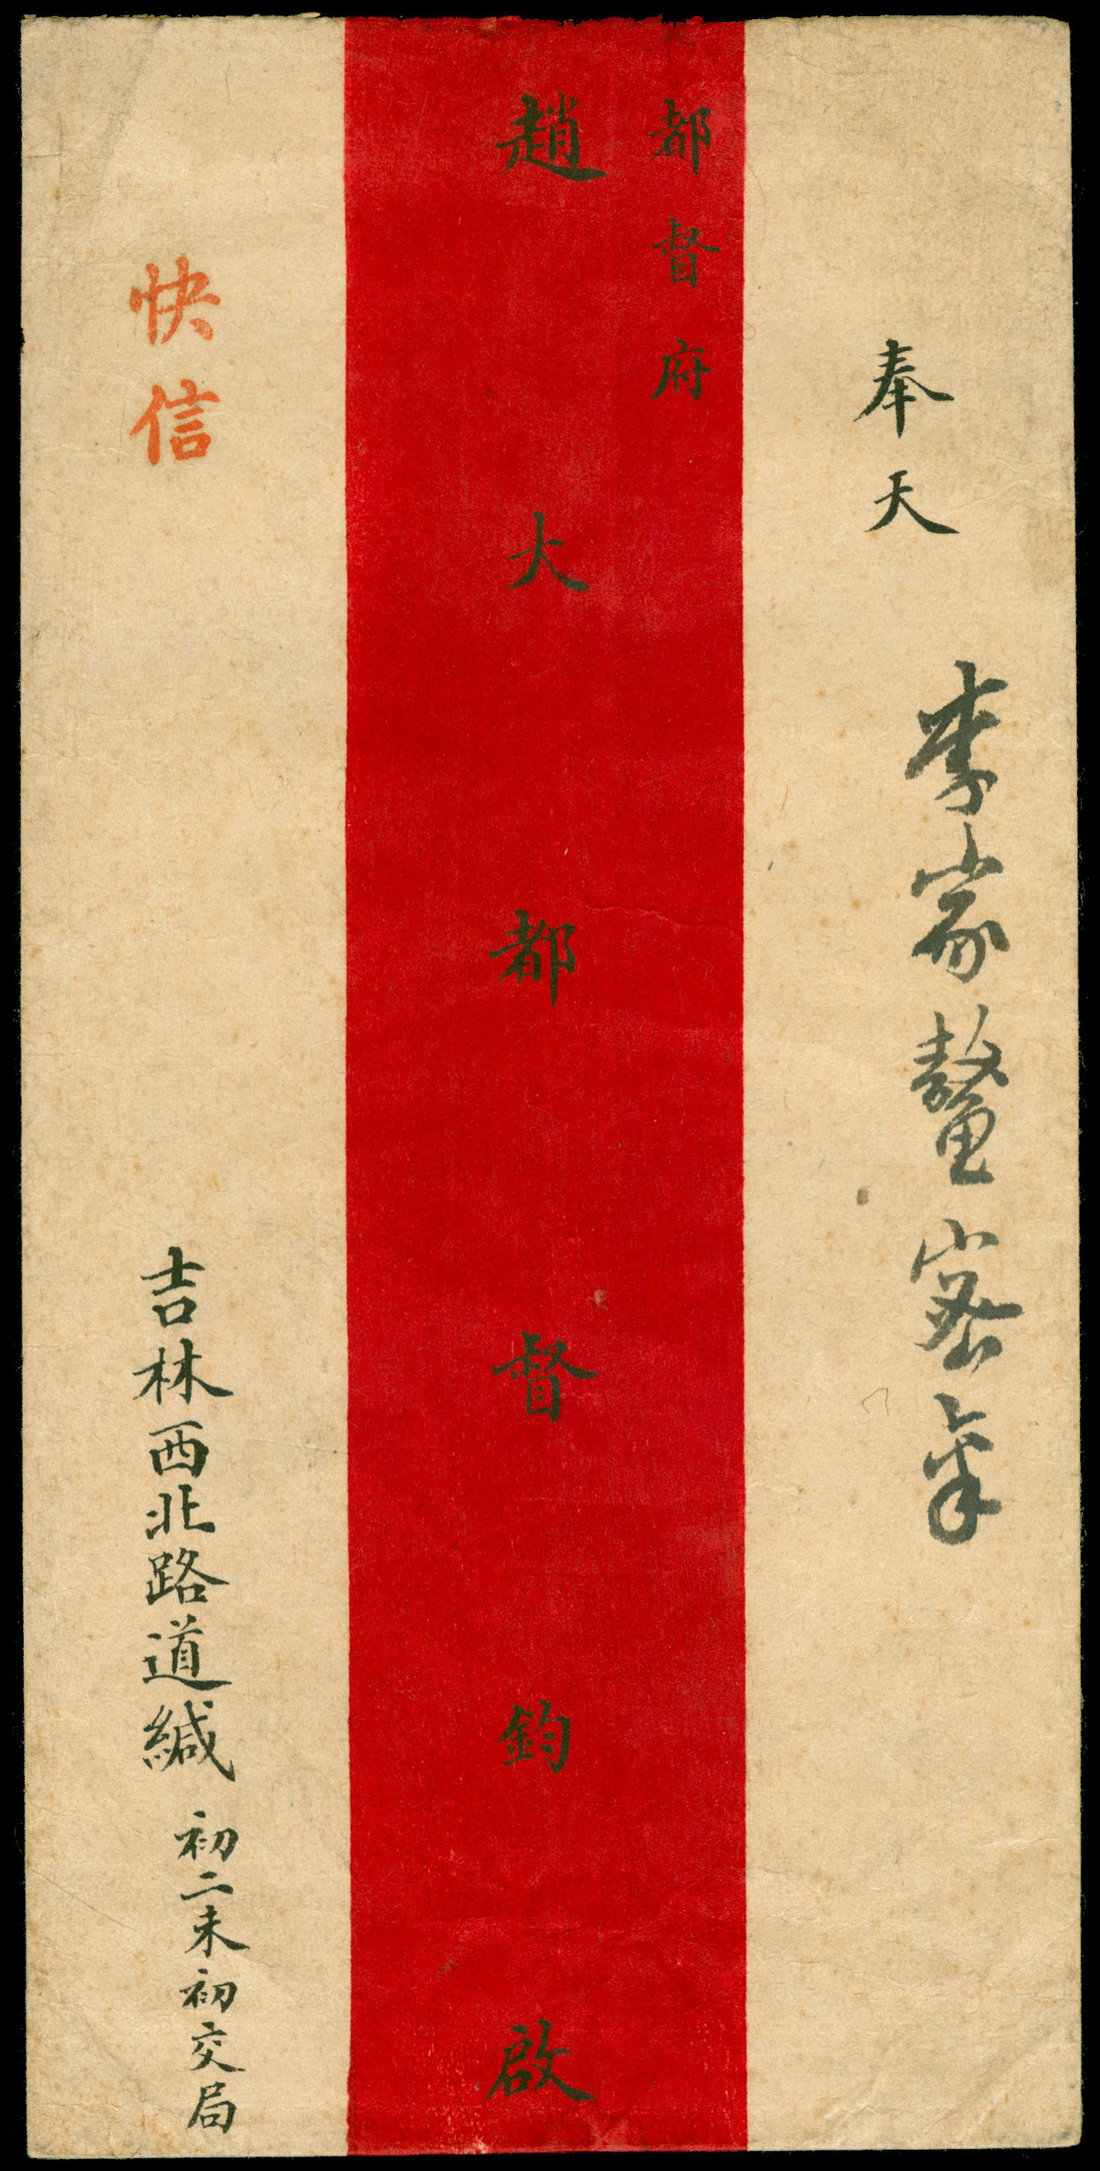 奉天
李家鳌密章
都督府
趙大都督鈞啟
快信
吉林西北路道緘
初二未初交局